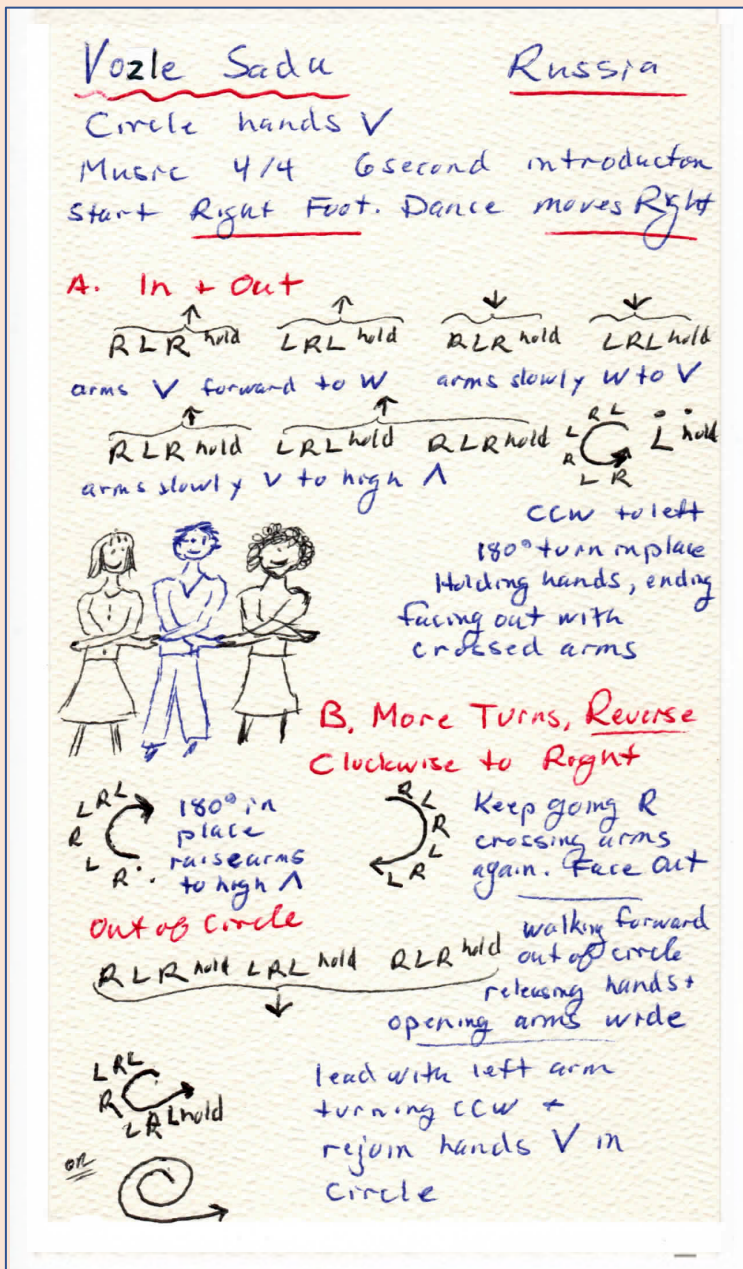 Vozle Sadu Russia
Circle hands V
Music 4/4 6 second introducton
Start Right Foot. Dance moves Right
A. In + Out
R L R hold L R L hold R L R hold L R L hold
arms V forward to W arms slowly W to V
R L R hold L R L hold R L R hold L R L R L R L hold
arms slowly V to high Λ
CCW to left
180° turn in place
Holding hands, ending
facing out with
crossed arms
B. More Turns, Reverse
Clockwise to Right
R L R L R L
180° in
place
raise arms
to high Λ
R L R L R L
Keep going R
crossing arms
again. Face Out
Out of Circle
R L R hold L R L hold R L R hold
walking forward
out of circle
releasing hands +
opening arms wide
L R L R L R L hold
or
lead with left arm
turning CCW +
rejoin hands V in
Circle